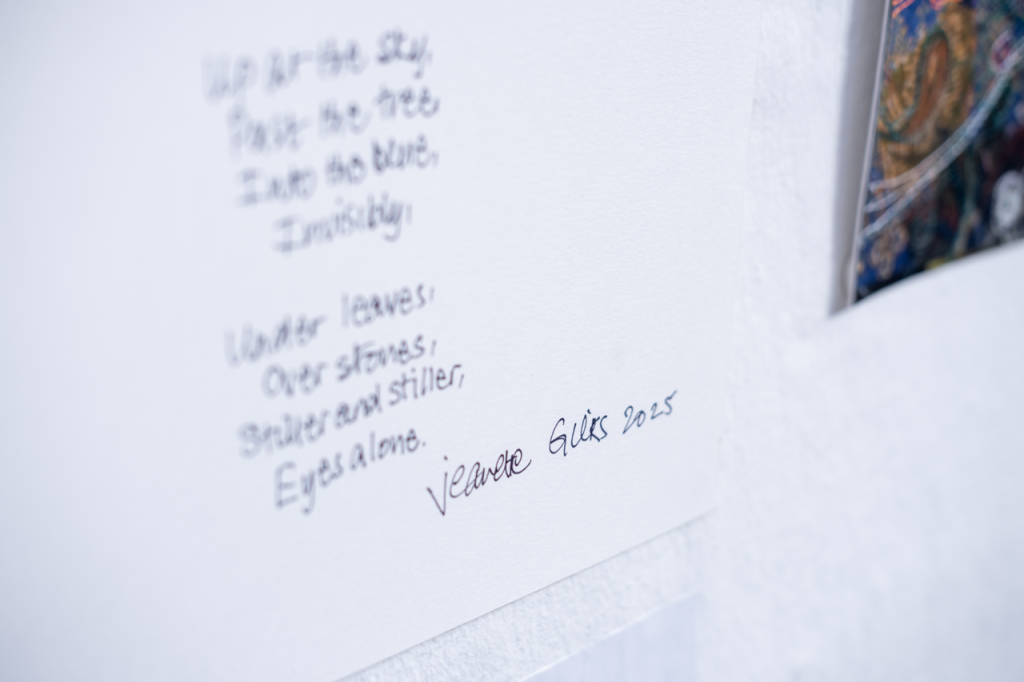 Up at the sky,
Past the tree
Into the blue,
Invisibly,
Under leaves,
Over stones,
Stiller and stiller,
Eyes alone.
Jeanette Gilks 2025